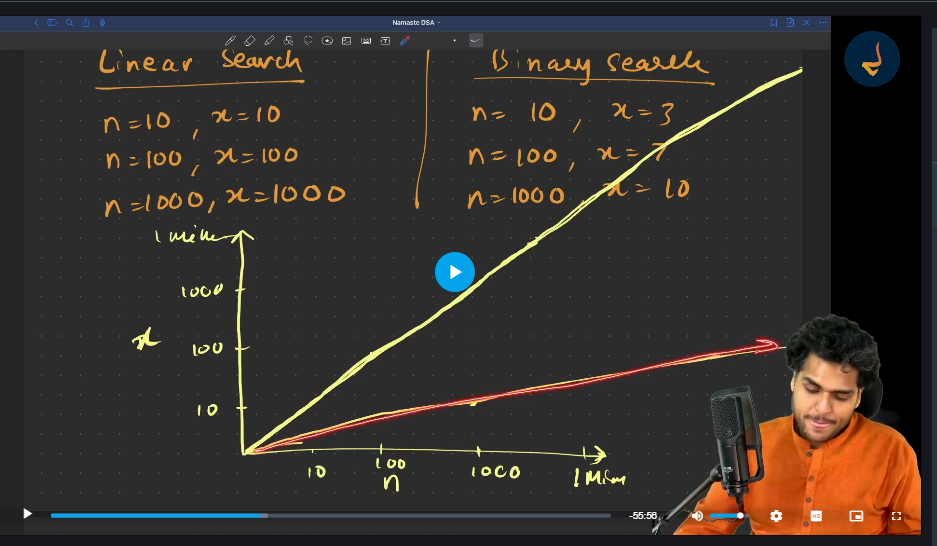 Namaste DSA
Linear Search
n=10, x=10
n=100, x=100
n=1000, x=1000
Binary search
n= 10, x=3
n=100, x=7
n=1000, x=10
1 million
1000
100
10
x
10 100 1000 1 Million
n
-55:56
HD